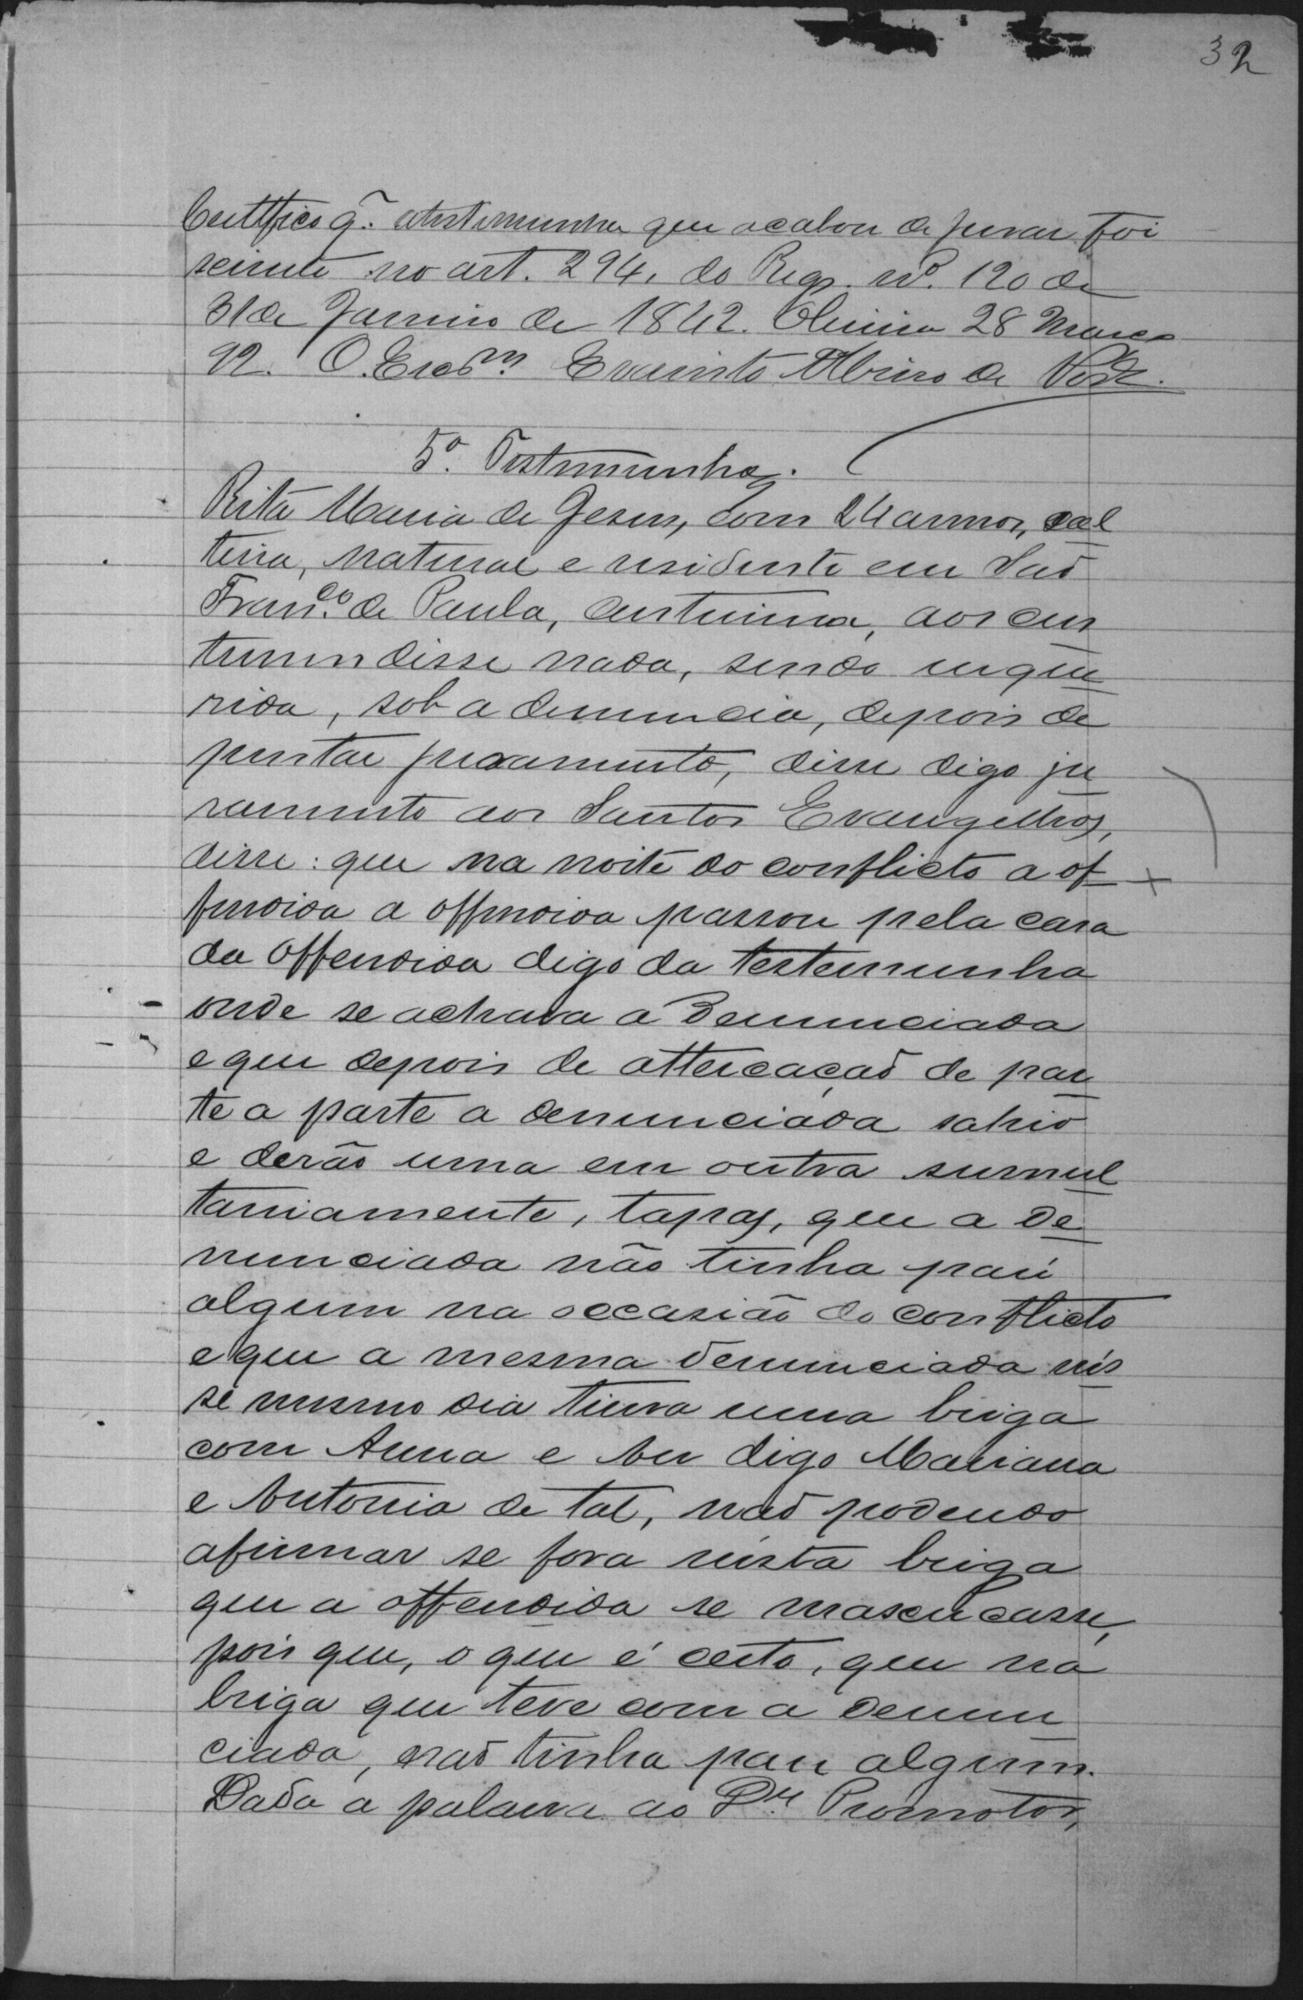 32
Certifico q. a testemunha que acabou de jurar foi
sciente no art. 294, do Reg. nº. 120 de
31 de Janeiro de 1842. 28 Março
92. O Escr.m Evaristo de
5ª. Testemunha.
Rita Maria de Jesus, com 24 annos, sol
teira, natural e residente em Saõ
Fran.co de Paula, custureira, aos cus
tumes disse nada, sendo inque
rida, sob a denuncia, depois de
prestar juramento, disse digo ju
ramento aos Santos Evangelhos,
disse: que na noite do conflicto a of
fendida a offendida passou pela casa
da offendida digo da testemunha
onde se achava a Denunciada
e que depois de altercaçaõ de par
te a parte a denunciada sahio
e derão uma em outra simul
taniamente, tapas, que a de
nunciada não tinha páu
algum na occasião do conflicto
e que a mesma denunciada nés
se mesmo dia tivera uma briga
com Anna e An digo Mariana
e Antonia de tal, naõ podendo
afirmar se fora nésta briga
que a offendida se maxucasse,
pois que, o que é certo, que na
briga que teve com a denun
ciada, naõ tinha pau algum.
Dada a palavra ao Dr. Promotor,